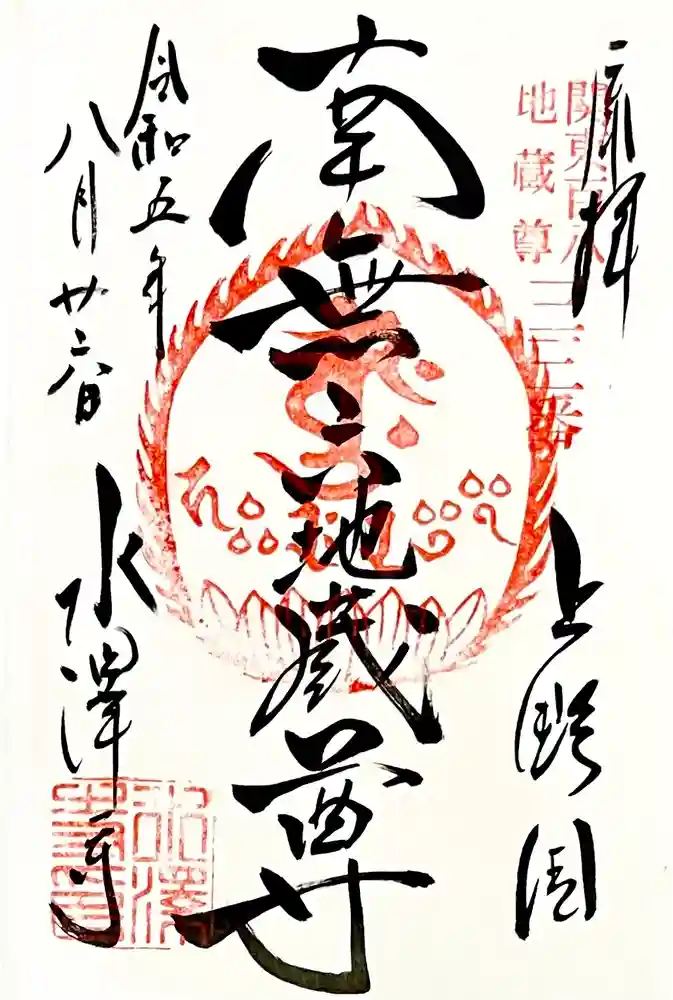 奉拝
関東百八
地蔵尊
番
上野國
南無六地蔵尊
令和五年
八月廿六日
水澤寺
水澤